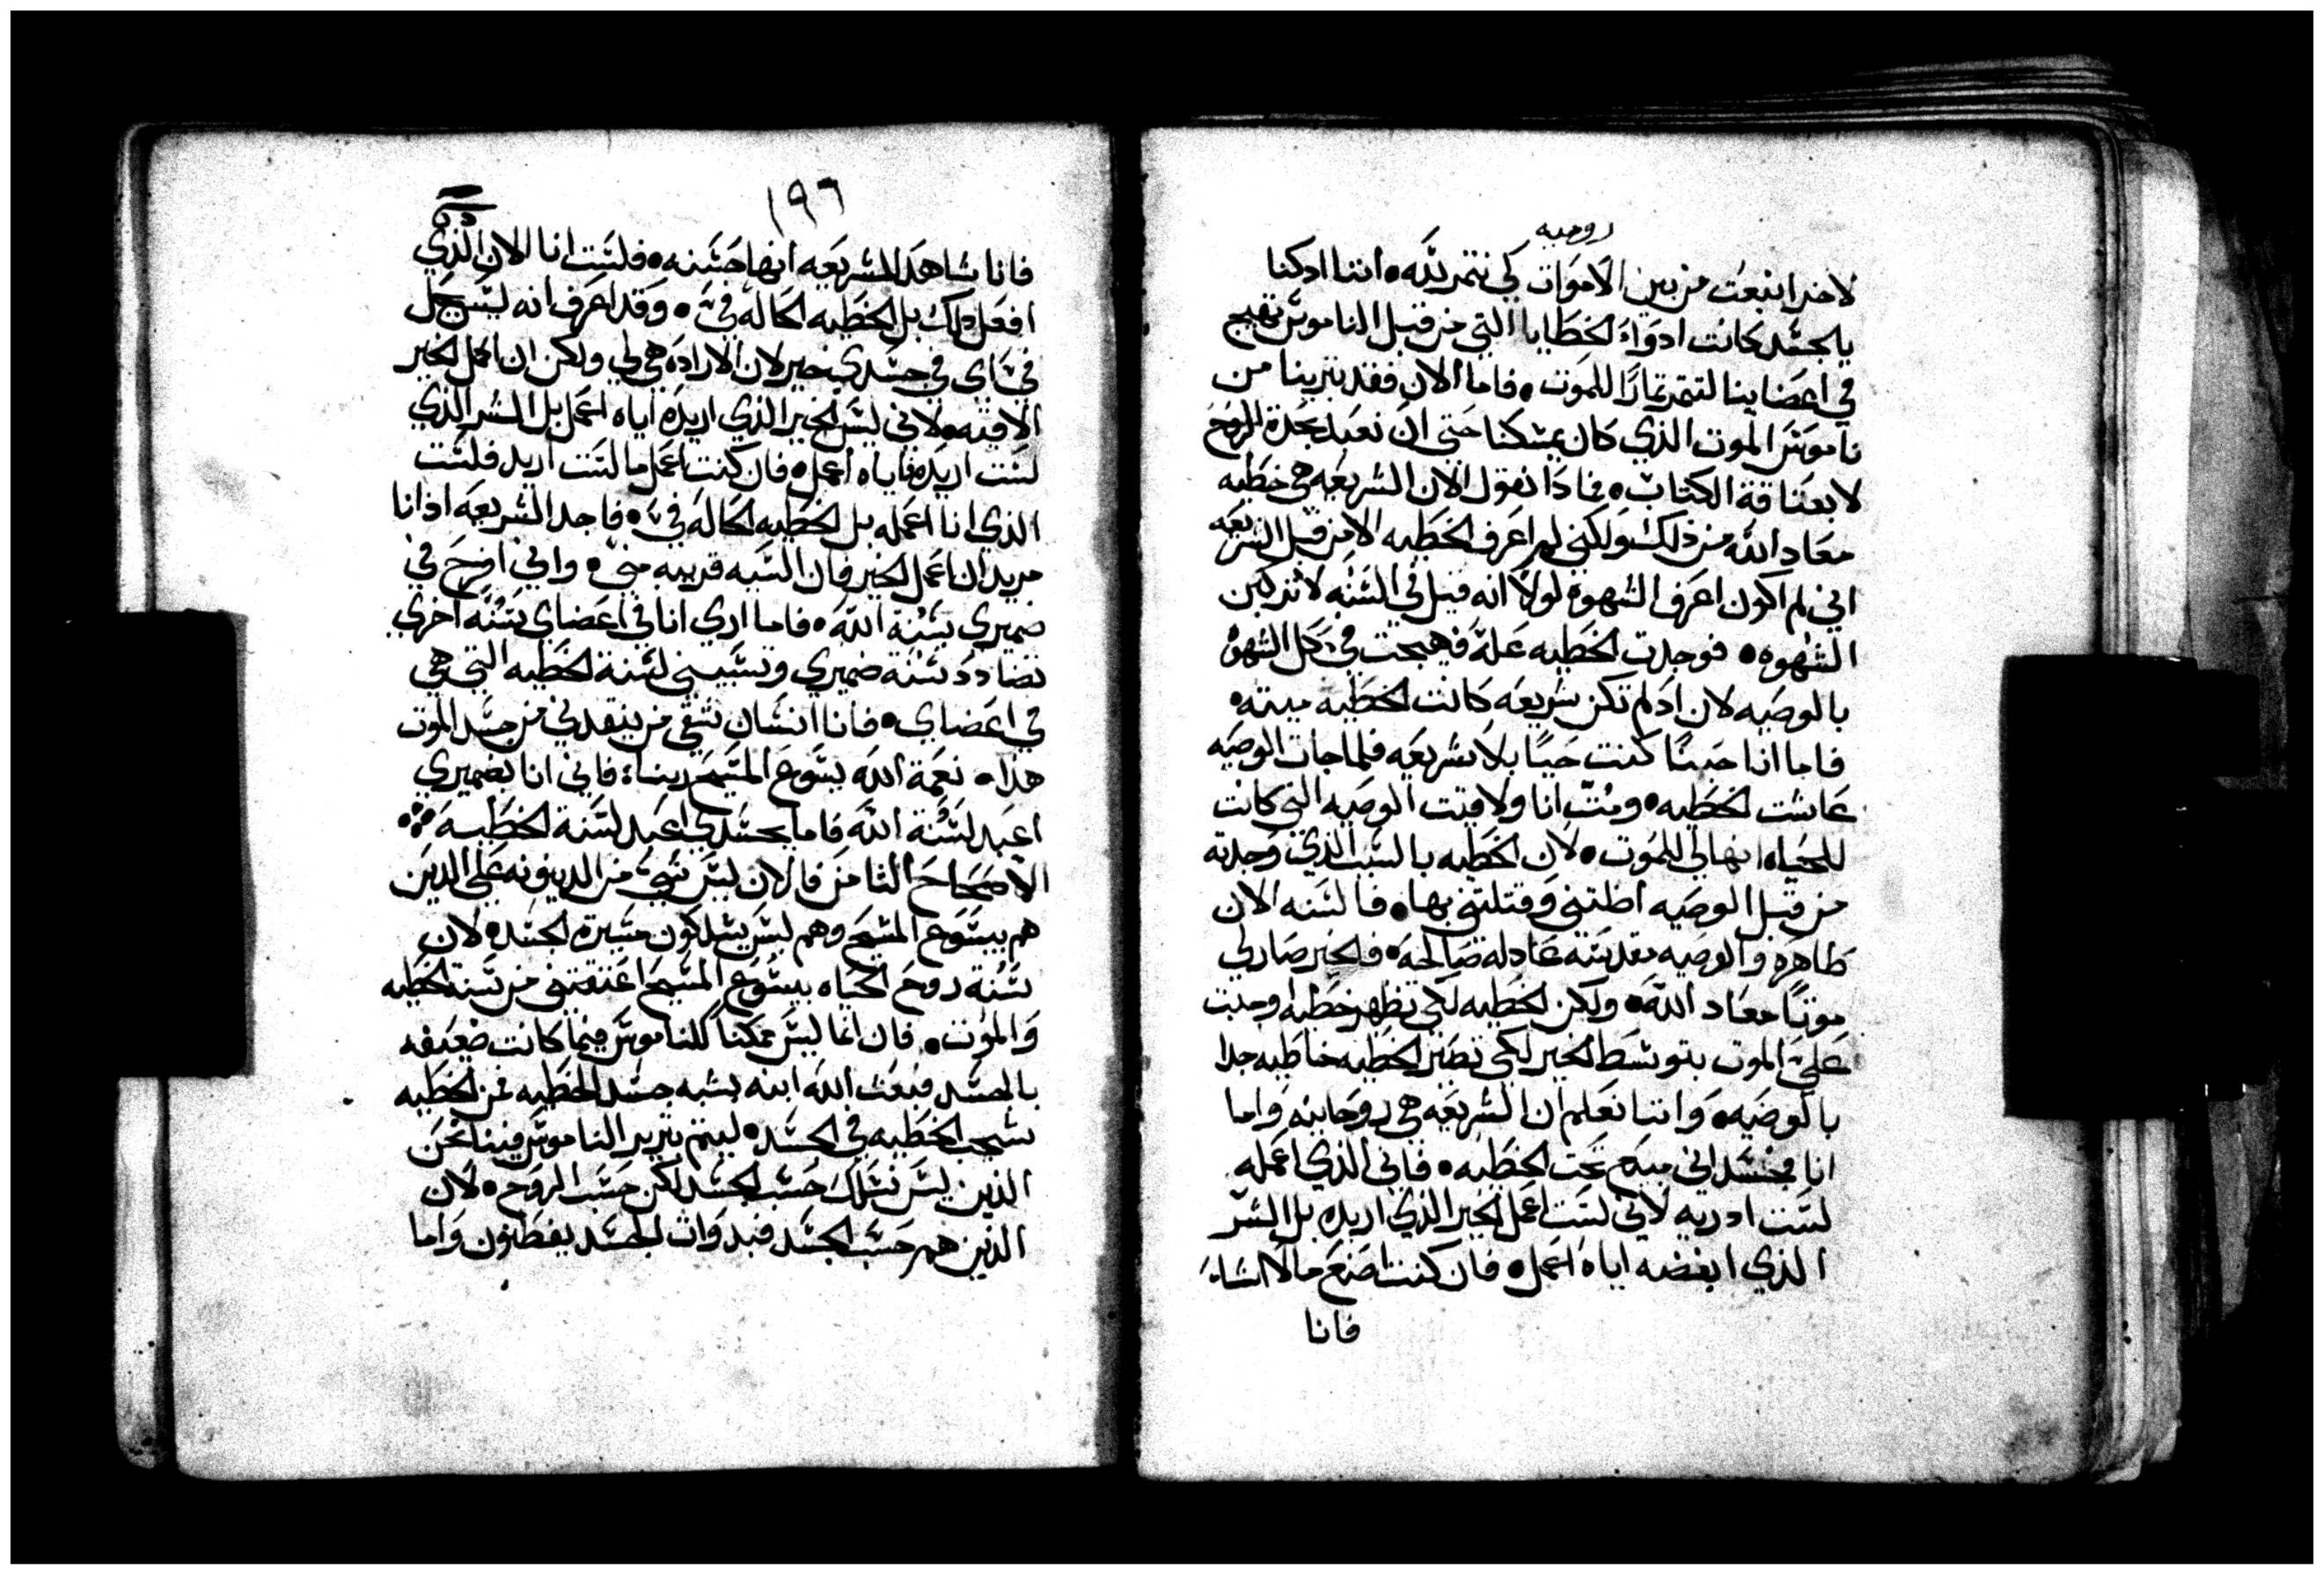 روميه
لاخر انبعث من بين الاموات لكي نتمر لله • اننا اذ كنا
بالجسد كانت ادواء الخطايا التي من قبل الناموس تهيج
في اعضاينا لتتمر تمارًا للموت • فاما الان فقد تبرينا من
ناموس الموت الذي كان يمسكنا حتي ان نعبد بجدة الروح
لا بعتاقة الكتاب • فماذا نقول الان الشريعه هي خطيه
معاد الله من ذلك ولكني لم اعرف الخطيه الا من قبل الشريعه
اني لم اكون اعرف الشهوه لولا انه قيل في السنه لا تذكين
الشهوه • فوجدت الخطيه عله فهيجت في كل الشهوه
بالوصيه لان اد لم تكن شريعه كانت الخطيه ميته •
فاما انا حينًا كنت حيًا بلا شريعه فلما جات الوصيه
عاشت الخطيه • ومُتّ انا ولافيت الوصيه التي كانت
للحياه انها لي للموت • لان الخطيه بالسبب الذي وجدته
من قبل الوصيه اطلتني وقتلتني بها • فالسنه الان
طاهره والوصيه مقدسه عادله صالحه • فالخير صار لي
موتًا معاد الله • ولكن الخطيه لكي تظهر خطيه اوجبت
علي الموت بتوسط الخير لكي تصير الخطيه خاطيه جدا
بالوصيه • واننا نعلم ان الشريعه هي روحانيه واما
انا فجسداني مبيع تحت الخطيه • فاني الذي اعمله
لست ادريه لاني لست اعمل الخير الذي اريده بل الشر
الذي ابغضه اياه اعمل • فان كنت اصنع ما لا اشاء
فانا
١٩٦
فانا شاهد للشريعه انها حسنه • فلست انا الان الذي
افعل ذلك بل الخطيه الحاله فيّ • وقد اعرف انه ليس يحل
فيّ اي في جسدي خير لان الاراده هي لي ولكن ان اعمل الخير
الافيه • لاني ليس الخير الذي اريده اياه اعمل بل الشر الذي
لست اريده فاياه اعمل • فان كنت اعمل ما لست اريد فلست
الذي انا اعمله بل الخطيه الحاله فيّ • فاجد الشريعه اذ انا
مريد ان اعمل الخير فان السيه قريبه مني • واني افرح في
ضميري بسنة الله • فاما اري انا في اعضاي سنه اخري
تضادد سنة ضميري وتسبيني لسنة الخطيه التي هي
في اعضاي • فانا انسان شقي من ينقدني من جسد الموت
هذا • نعمة الله يسوع المسيح ربنا • فاني انا بضميري
اعبد لسنة الله فاما بجسدي اعبد لسنة الخطيه
الاصحاح الثامن فالان ليس شي من الدينونه علي الدين
هم بيسوع المسيح وهم ليس يسلكون مسيرة الجسد • لان
سنة روح الحياه بيسوع المسيح اعتقتني من سنة الخطيه
والموت • فان انما ليس ممكنًا للناموس فيما كانت ضعيفه
بالجسد فبعث الله ابنه بشبه جسد الخطيه فمن الخطيه
شجب الخطيه في الجسد • ليتم تبرير الناموس فينا نحن
الذين ليس نسلك حسب الجسد لكن حسب الروح • لان
الذين هم حسب الجسد فبدوات الجسد يفطنون واما